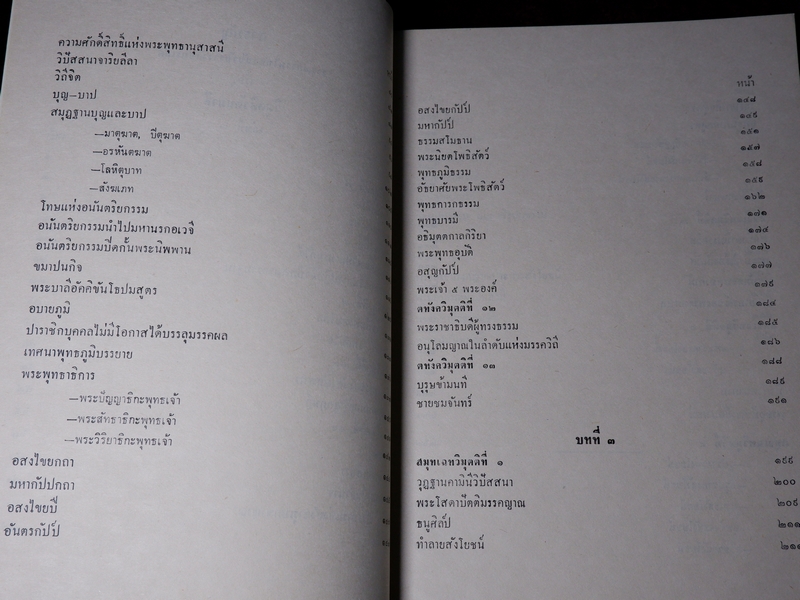 ความศักดิ์สิทธิ์แห่งพระพุทธานุสาสนี
วิปัสสนาจาริยลีลา
วิถีจิต
บุญ—บาป
สมุฏฐานบุญและบาป
—มาตุฆาต, ปิตุฆาต
—อรหันตฆาต
—โลหิตุบาท
—สังฆเภท
โทษแห่งอนันตริยกรรม
อนันตริยกรรมนำไปมหานรกอเวจี
อนันตริยกรรมปิดกั้นพระนิพพาน
ขมาปนกิจ
พระบาลีอัคคิขันโธปมสูตร
อบายภูมิ
ปาราชิกบุคคลไม่มีโอกาสได้บรรลุมรรคผล
เทศนาพุทธภูมิบรรยาย
พระพุทธาธิการ
—พระปัญญาธิกะพุทธเจ้า
—พระสัทธาธิกะพุทธเจ้า
—พระวิริยาธิกะพุทธเจ้า
อสงไขยกถา
มหากัปปกถา
อสงไขยปี
อันตรกัปป์
หน้า
อสงไขยกัปป์ ๑๔๘
มหากัปป์ ๑๔๙
ธรรมสโมธาน ๑๕๑
พระนิยตโพธิสัตว์ ๑๕๗
พุทธภูมิธรรม ๑๕๘
อัธยาศัยพระโพธิสัตว์ ๑๕๙
พุทธการกธรรม ๑๖๒
พุทธบารมี ๑๗๑
อธิมุตตกาลกิริยา ๑๗๔
พระพุทธอุบัติ ๑๗๖
อสุญกัปป์ ๑๗๗
พระเจ้า ๕ พระองค์ ๑๗๙
ตทังควิมุตติที่ ๑๒ ๑๘๔
พระราชาธิบดีผู้ทรงธรรม ๑๘๕
อนุโลมญาณในลำดับแห่งมรรควิถี ๑๘๖
ตทังควิมุตติที่ ๑๓ ๑๘๘
บุรุษข้ามนที ๑๘๙
ชายชมจันทร์ ๑๙๑
บทที่ ๓
สมุทเฉทวิมุตติที่ ๑ ๑๙๙
วุฏฐานคามินีวิปัสสนา ๒๐๐
พระโสดาปัตติมรรคญาณ ๒๐๙
ธนูศิลป์ ๒๑๑
ทำลายสังโยชน์ ๒๑๑